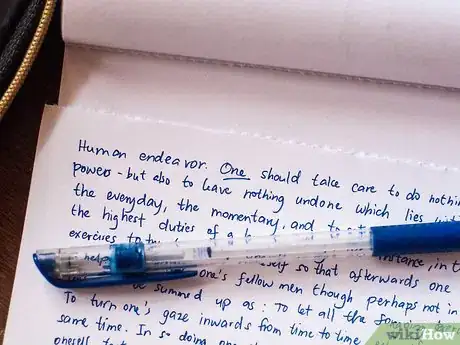 Human endeavor. One should take care to do nothin
powers - but also to leave nothing undone which lies wit
the everyday, the momentary, and to
the highest duties of a
exercises to
help so that afterwards one
one's fellow men though perhaps not in
be summed up as: To let all the
To turn one's gaze inwards from time to time
same time. In so doing one
oneself to
wikiHow